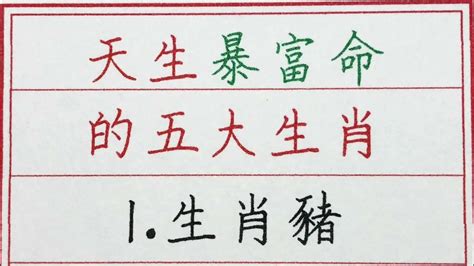 天生暴富命
的五大生肖
1.生肖豬